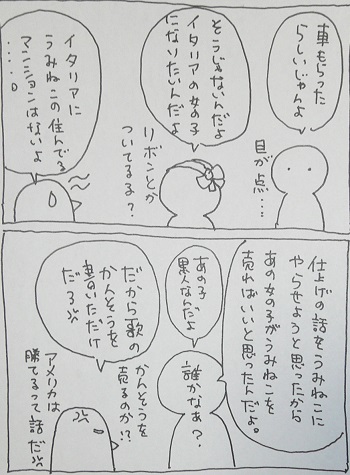 車もらった
らしいじゃんよ
目が点…
そうじゃないんだよ
イタリアの女の子
になりたいんだよ
リボンとか
ついてるる?
イタリアに
うみねこの住んでる
マンションはないよ
……。
仕上げの話をうみねこに
やらせようと思ったから
あの女の子がうみねこを
売ればいいと思ったんだよ。
あの子
黒人なんだよ
誰かなぁ?
だから歌の
かんそうを
書いただけ
だろ
かんそうを
売るのか!?
アメリカは
勝てるって話だ